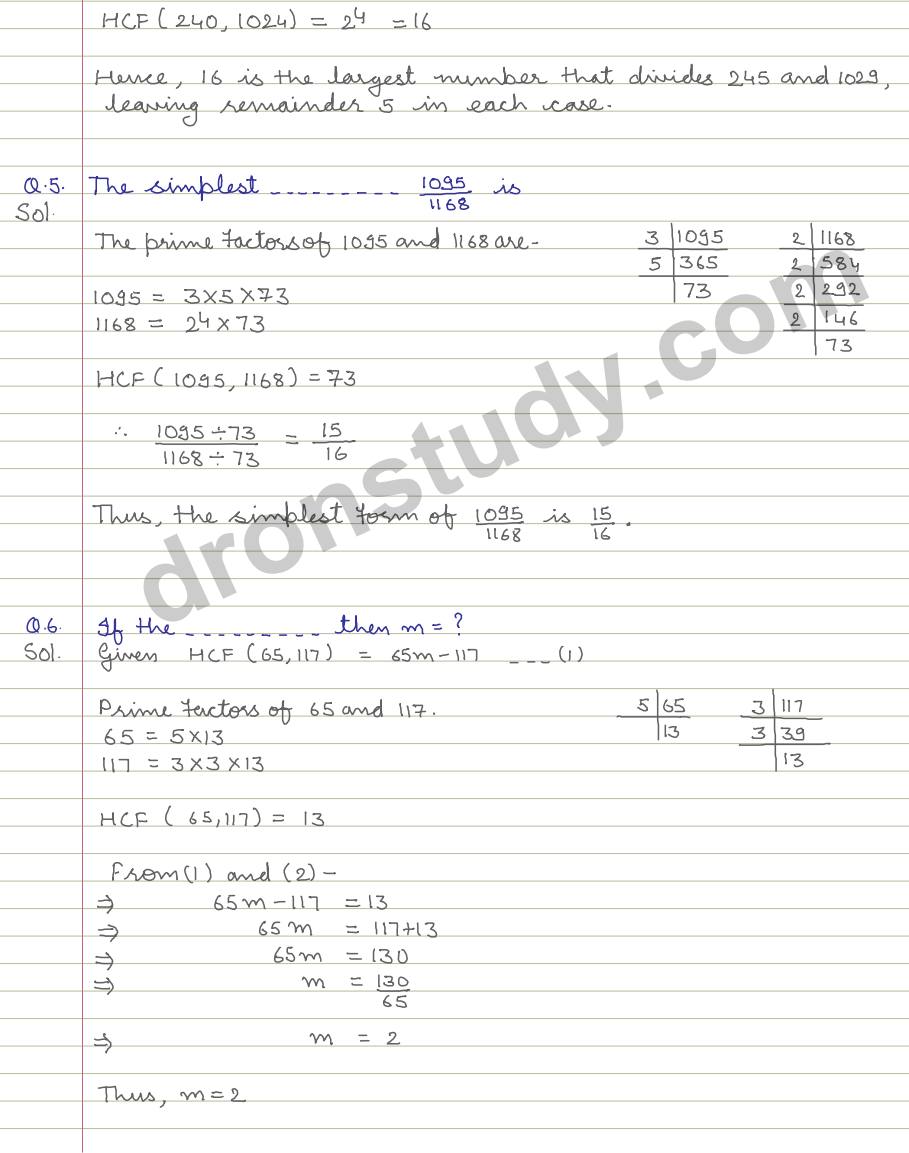 HCF ( 240, 1024) = 2⁴ = 16
Hence, 16 is the largest number that divides 245 and 1029,
leaving remainder 5 in each case.
Q.5. The simplest --------- 1095/1168 is
Sol.
The prime factors of 1095 and 1168 are-
3 | 1095
5 | 365
| 73
2 | 1168
2 | 584
2 | 292
2 | 146
| 73
1095 = 3×5×73
1168 = 2⁴×73
HCF ( 1095, 1168) = 73
∴ 1095÷73/1168÷73 = 15/16
Thus, the simplest form of 1095/1168 is 15/16.
dronstudy.com
Q.6. If the ---------- then m = ?
Sol. Given HCF (65,117) = 65m-117 ---(1)
Prime factors of 65 and 117.
5 | 65
| 13
3 | 117
3 | 39
| 13
65 = 5×13
117 = 3×3×13
HCF ( 65,117) = 13
From (1) and (2)-
⇒ 65m-117 = 13
⇒ 65m = 117+13
⇒ 65m = 130
⇒ m = 130/65
⇒ m = 2
Thus, m=2